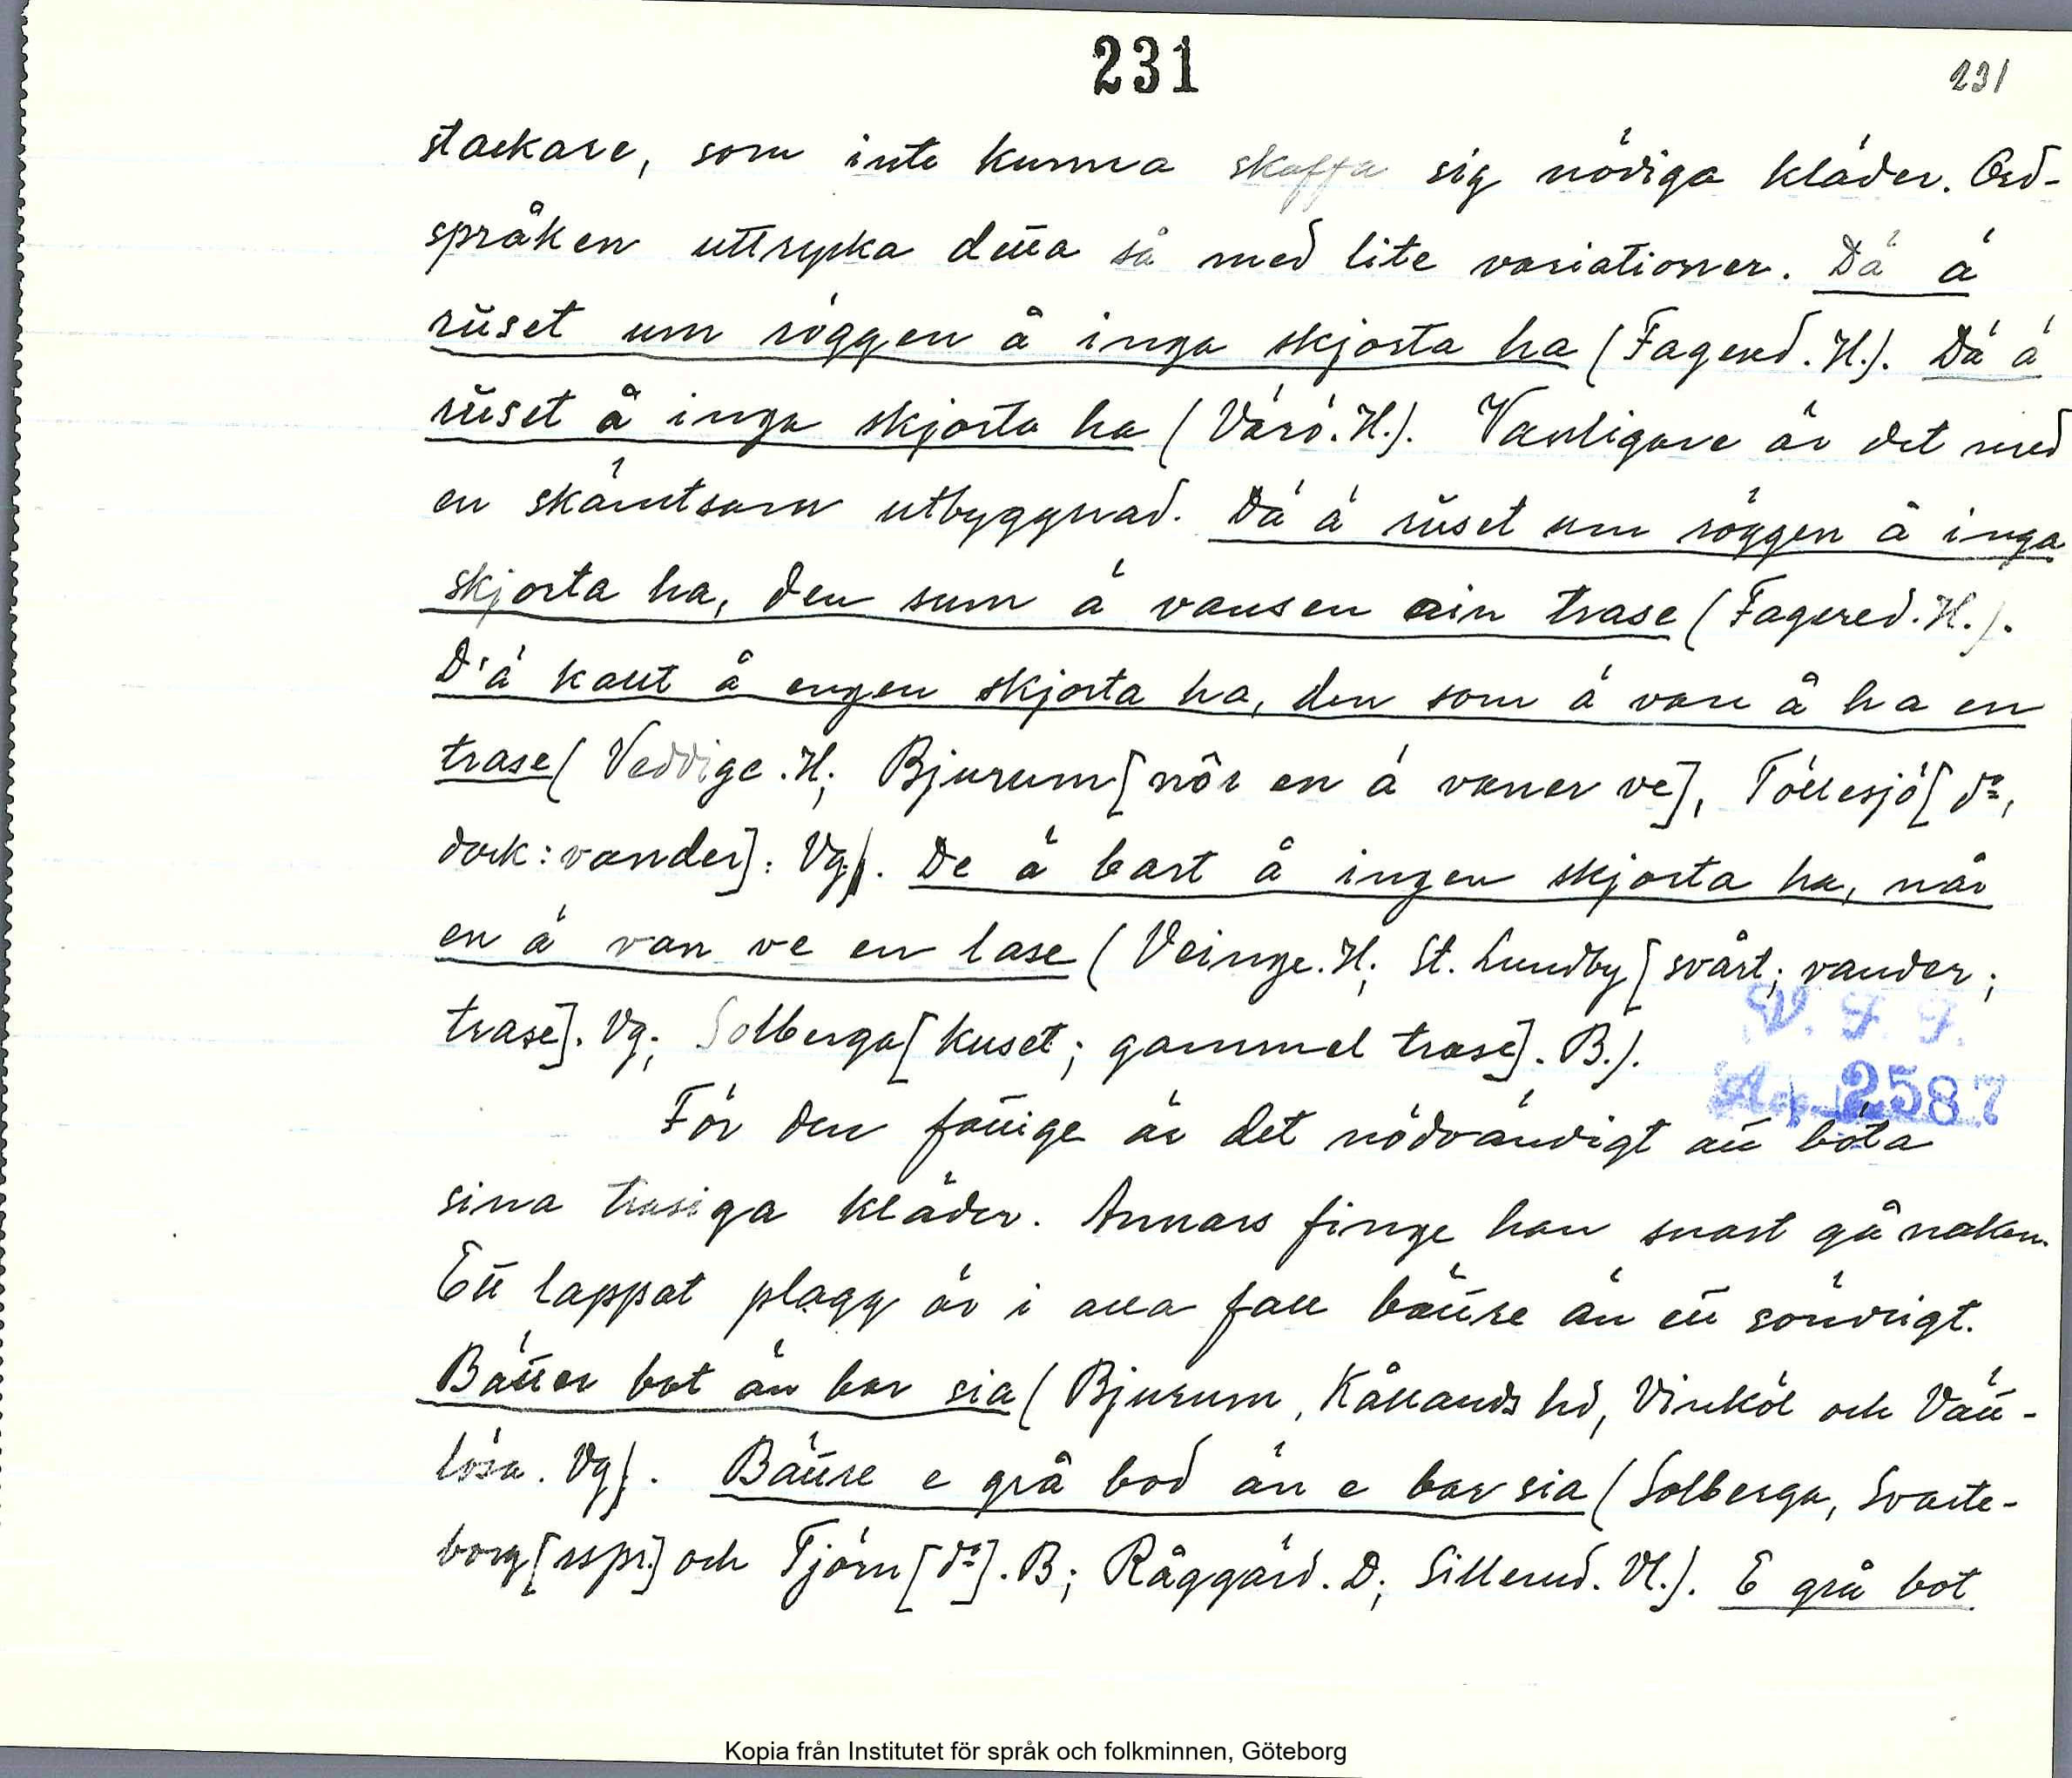 231
231
stackare, som inte kunna skaffa sig nödiga kläder. Ord-
språken uttrycka detta så med lite variationer. Dä ä
ruset um röggen å inga skjorta ha (Fagered. H.). Dä ä
ruset å inga skjorta ha (Värö. H.). Vanligare är det med
en skämtsam utbyggnad. Dä ä ruset um röggen å inga
skjorta ha, den sum ä vansen ain trase (Fagered. H.).
D'ä kallt å engen skjorta ha, den som ä van å ha en
trase (Veddige. H; Bjurum [nôr en ä vaner ve], Töllesjö [d:o,
dock: vander]. Vg.). De ä bart å ingen skjorta ha, när
en ä van ve en lase (Veinge. H; St. Lundby [svårt; vander;
trase]. Vg; Solberga [kuset; gammel trase]. B.).
V. F. F.
Acc. 2587
För den fattige är det nödvändigt att böta
sina trasiga kläder. Annars finge han snart gå naken.
Ett lappat plagg är i alla fall bättre än ett söndrigt.
Bätter bot än bar sia (Bjurum, Kållands hd, Vinköl och Vätt-
lösa. Vg.). Bättre e grå bod än e bar sia (Solberga, Svarte-
borg [rspr.] och Tjörn [d:o]. B; Råggärd. D; Sillerud. Vl.). E grå bot
Kopia från Institutet för språk och folkminnen, Göteborg